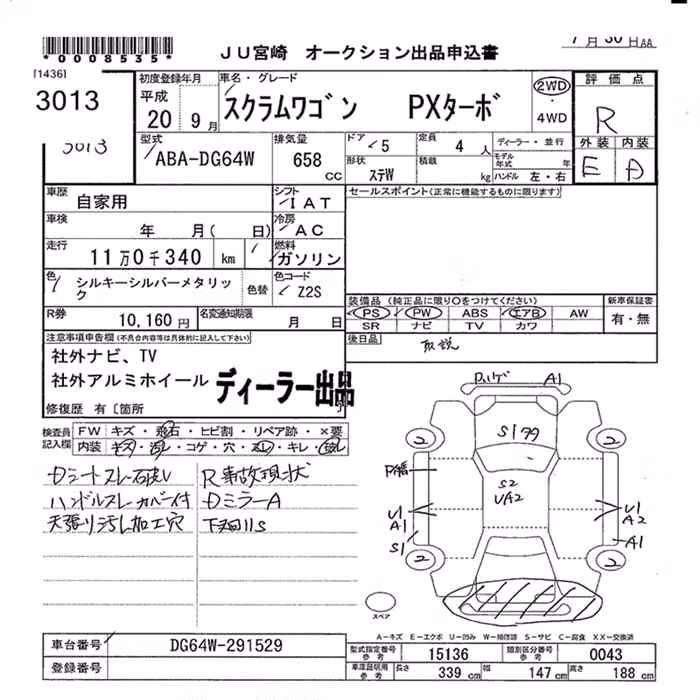 *0008535*
JU宮崎 オークション出品申込書
7月30日AA
[1436]
3013
初度登録年月
平成
20 9月
車名・グレード
スクラムワゴン PXターボ
2WD
4WD
評価点
R
外装 内装
E A
3013
型式
ABA-DG64W
排気量
658
cc
ドア
5
定員
4 人
ディーラー・並行
形状
ステW
積載
kg
モデル年式 年
ハンドル 左・右
車歴
自家用
シフト
IAT
車検
年 月( 日)
冷房
AC
走行
11万0千340 km
燃料
ガソリン
色
シルキーシルバーメタリック
色替
色コード
Z2S
R券
10,160円
名変通知期限
月 日
セールスポイント(正常に機能するものに限ります)
装備品 (純正品に限り○をつけてください)
PS PW ABS エアB AW
SR ナビ TV カワ
新車保証書
有・無
後日品
取説
注意事項申告欄(不具合内容等は具体的に記入して下さい)
社外ナビ、TV
社外アルミホイール
ディーラー出品
修復歴 有〔箇所
検査員記入欄
FW キズ・飛石・ヒビ割・リペア跡・×要
内装 キズ・汚レ・コゲ・穴・スレ・キレ・破レ
Dシートスレ破レ
ハンドルスレカバー付
天張り汚レ加工穴
R事故現状
DミラーA
下廻りS
A1
2 S199 2
P
S2
UA2
U1
A1
S1
U1
A2
A1
2 2
スペア
A-キズ E-エクボ U-凹み W-補修跡 S-サビ C-腐食 XX-交換済
車台番号
DG64W-291529
登録番号
型式指定番号 参考
15136
類別区分番号 参考
0043
車庫証明用 参考
長さ 339 cm
幅 147 cm
高さ 188 cm